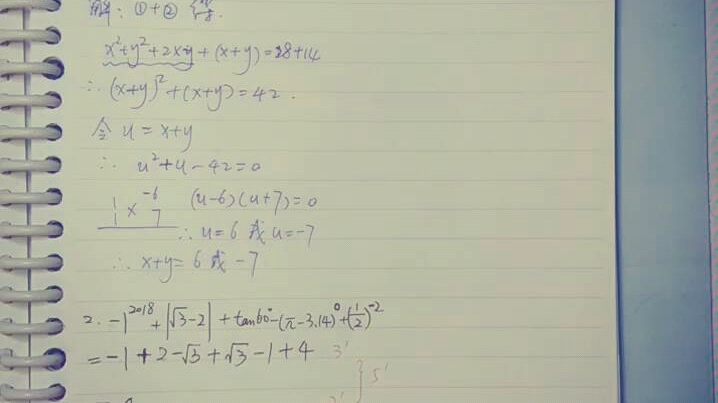 解：①+② 得
x²+y²+2xy+(x+y)=28+14
∴ (x+y)²+(x+y)=42.
令 u=x+y
∴ u²+u-42=0
1 × -6 (u-6)(u+7)=0
1 7
∴ u=6 或 u=-7
∴ x+y=6 或 -7
2. -1²⁰¹⁸+|√3-2|+tan60°-(π-3.14)⁰+(1/2)⁻²
=-1+2-√3+√3-1+4 3'
5'